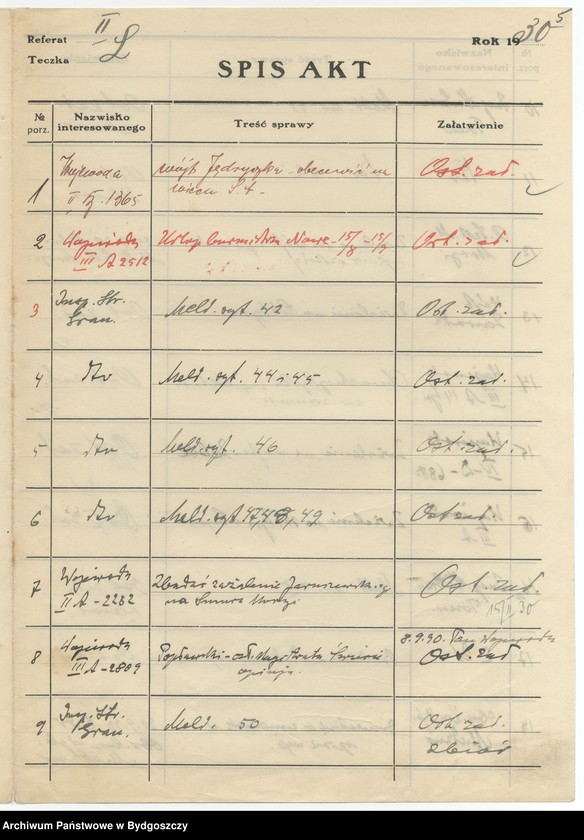 Referat II L
Teczka
Rok 1930 5
SPIS AKT
№ porz.
Nazwisko interesowanego
Treść sprawy
Załatwienie
1
Wojewoda
obecność na
Ost. zał.
2
Wojewoda
III A 2512
Urlop burmistrza Nowe - 15/8 - 15/9
Ost. zał.
3
Insp. Str.
Gran.
Meld. syt. 42
Ost. zał.
4
dto
Meld. syt. 44 i 45
Ost. zał.
5
dto
Meld. syt. 46
Ost. zał.
6
dto
Meld. syt 47, 48, 49
Ost. zał.
7
Wojewoda
II A - 2262
Zbadać zażalenie
na
Ost. zał.
15/II 30
8
Wojewoda
III A - 2889
Magistratu
opinja
8.9.30. Pan Wojewoda
Ost. zał
9
Insp. Str.
Gran.
Meld. 50
Ost. zał.
zbiór
Archiwum Państwowe w Bydgoszczy